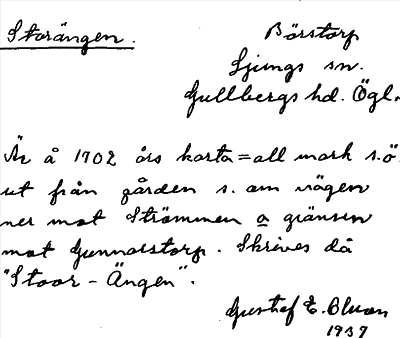 Storängen.
Börstorp
Ljungs sn.
Gullbergs hd. Ögl.
Är å 1702 års karta = all mark s.ö.
ut från gården s. om vägen
ner mot Strömmen o gränsen
mot Gunnarstorp. Skrives då
"Stoor-Ängen".
Gustaf E. Olson
1937